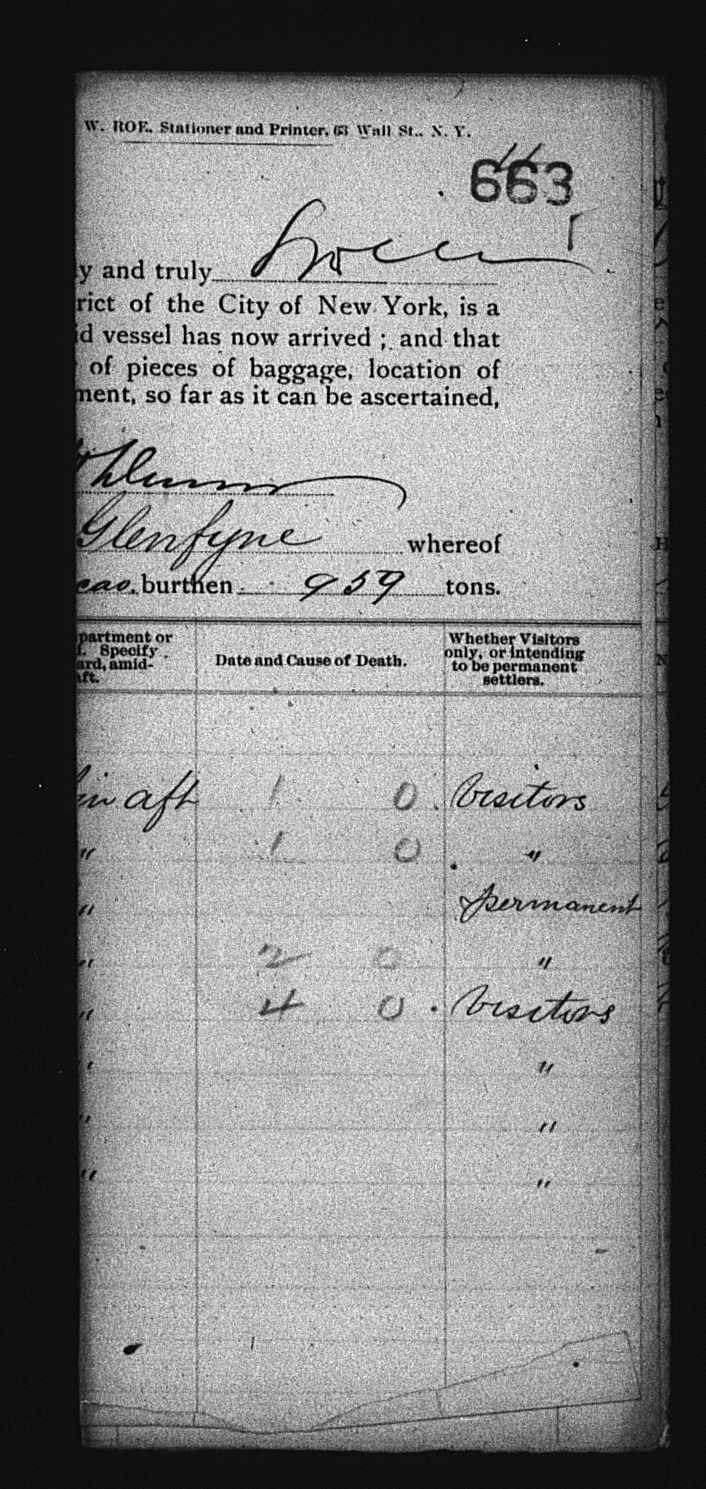 W. ROE, Stationer and Printer, 63 Wall St., N. Y.
663
y and truly
rict of the City of New York, is a
d vessel has now arrived ; and that
of pieces of baggage, location of
ment, so far as it can be ascertained,
Glenfyne whereof
burthen 959 tons.
partment or
Specify
ard, amid-
ft.
Date and Cause of Death.
Whether Visitors
only, or intending
to be permanent
settlers.
in aft 1 0 Visitors
" 1 0 "
" permanent
" 2 0 "
" 4 0 Visitors
" "
" "
" "